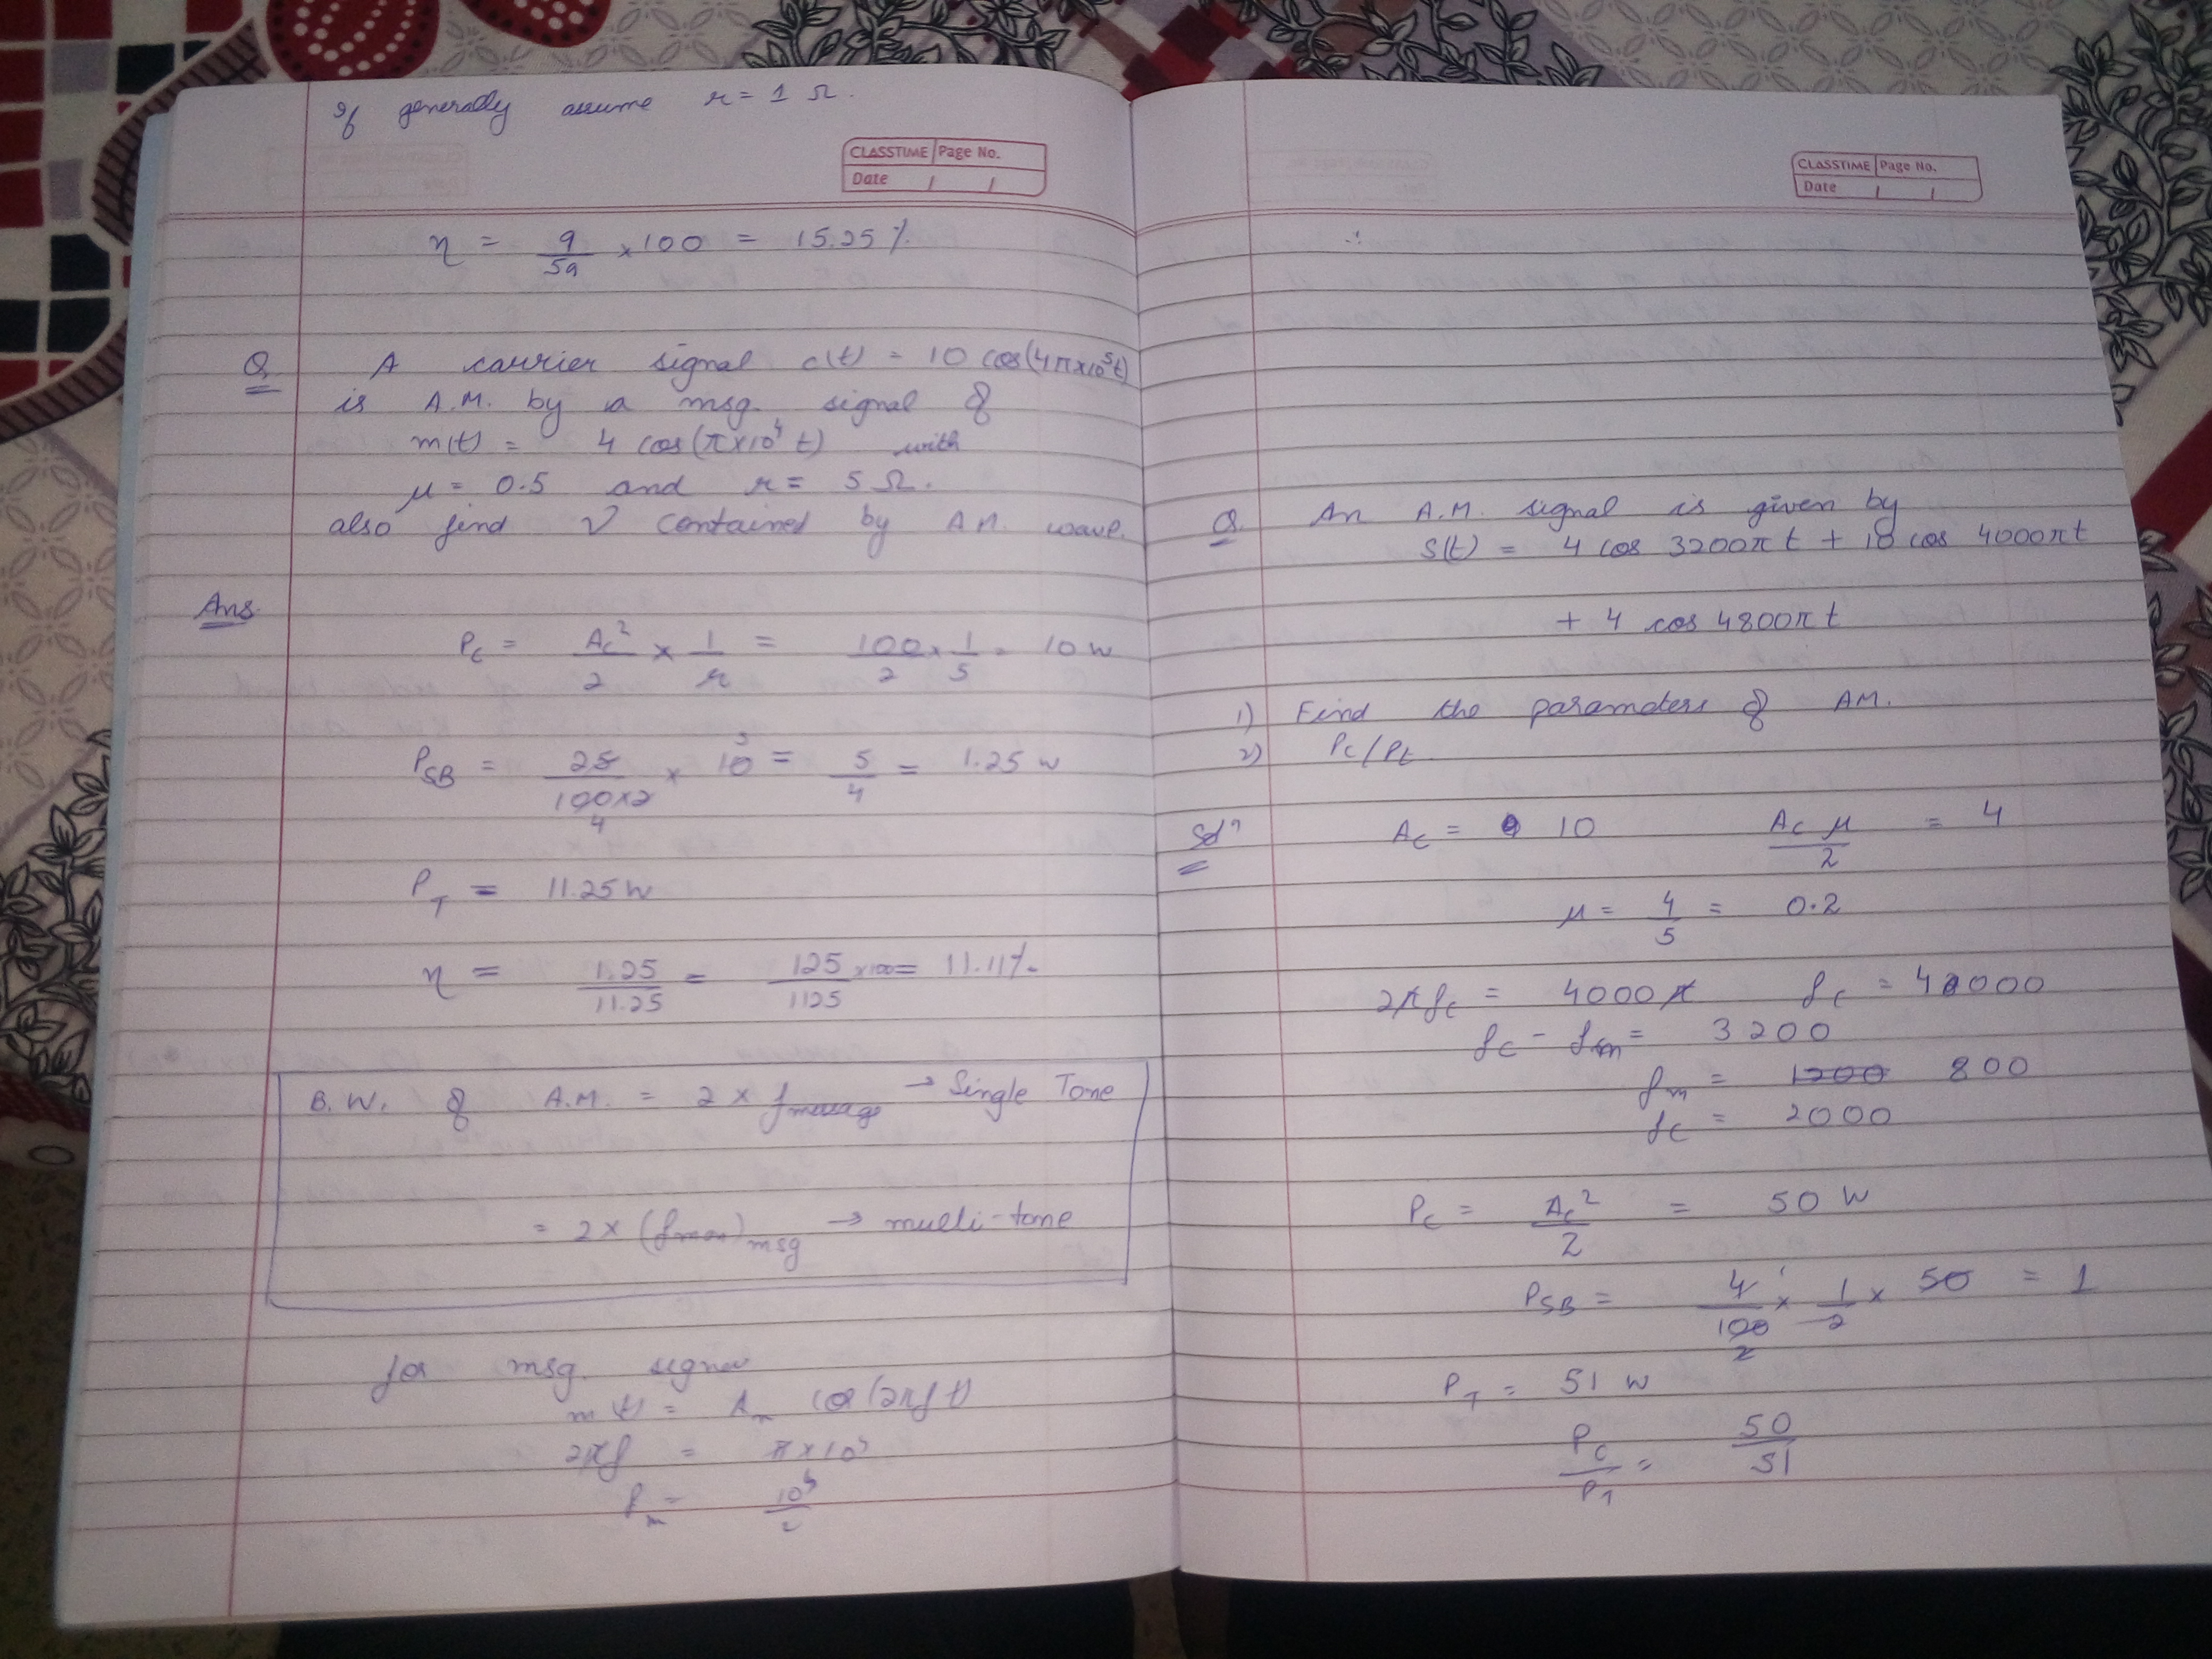 If generally assume r = 1 Ω.
CLASSTIME Page No.
Date / /
η = 9/59 × 100 = 15.25 %
Q. A carrier signal c(t) = 10 cos(4π×10⁵t)
is A.M. by a msg. signal of
m(t) = 4 cos(π×10⁴ t) with
μ = 0.5 and r = 5 Ω.
also find ν contained by A.M. wave.
Ans.
Pc = Ac²/2 × 1/r = 100/2 × 1/5 = 10 W
PSB = 25/100×2 × 10 = 5/4 = 1.25 W
4
PT = 11.25 W
η = 1.25/11.25 = 125/1125 ×100 = 11.11%
B.W. of A.M. = 2 × fmessage → Single Tone
= 2 × (fmax)msg → multi-tone
for msg. signal
m(t) = Am cos(2πft)
2πf =
fm =
CLASSTIME Page No.
Date / /
∴
Q. An A.M. signal is given by
S(t) = 4 cos 3200πt + 10 cos 4000πt
+ 4 cos 4800πt
1) Find the parameters of AM.
2) Pc/Pt
Solⁿ Ac = 10 Ac μ/2 = 4
μ = 4/5 = 0.2
2πfc = 4000π fc =
fc - fm = 3200
fm = 1200 800
fc = 2000
Pc = Ac²/2 = 50 W
PSB = 4/100 × 1/2 × 50 = 1
2
PT = 51 W
Pc/PT = 50/51